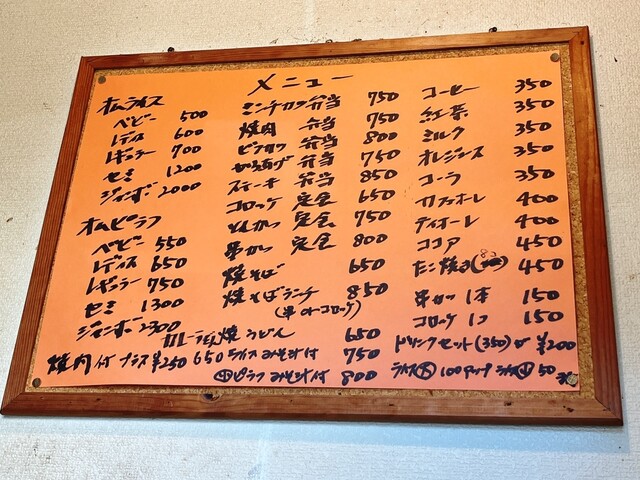 メニュー
オムライス
ベビー 500
レディス 600
レギュラー 700
セミ 1200
ジャンボー 2000
オムピラフ
ベビー 550
レディス 650
レギュラー 750
セミ 1300
ジャンボー 2300
焼肉付 プラス ¥250
ミンチカツ弁当 750
焼肉 弁当 750
ビフカツ 弁当 800
から揚げ 弁当 750
ステーキ 弁当 850
コロッケ 定食 650
とんかつ 定食 750
串かつ 定食 800
焼そば 650
焼そばランチ 850
(串 or コロッケ)
焼うどん 650
650 ライス みそ汁付 750
小ピラフ みそ汁付 800
コーヒー 350
紅茶 350
ミルク 350
オレジュース 350
コーラ 350
カフェオーレ 400
ティオーレ 400
ココア 450
たこ焼き 450
串カツ 1本 150
コロッケ 1コ 150
ドリンクセット(350)が ¥200
ライス大 100アップ ライス小 50